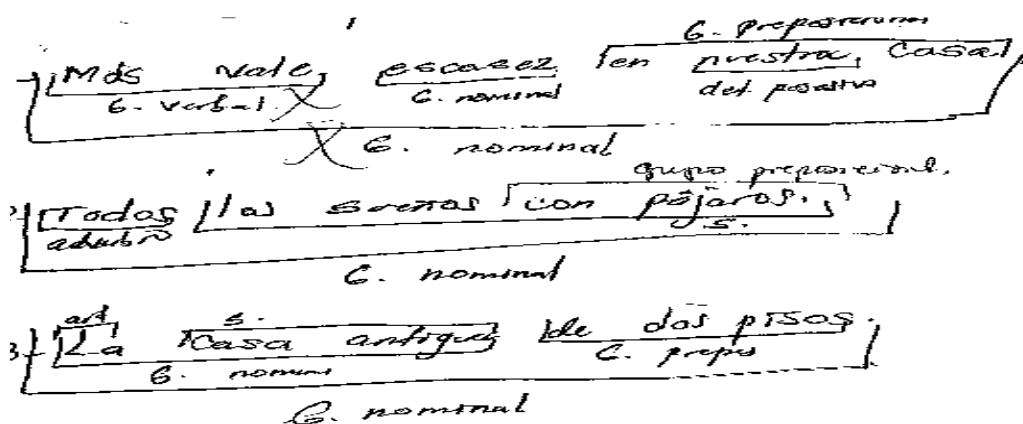 G. preposicional
Más vale, escasez en nuestra casa
G. verbal G. nominal det. posesivo
G. nominal
grupo preposicional.
Todas las sirenas con pájaros.
adverbio S.
G. nominal
art S.
3- La casa antigua de dos pisos.
G. nominal G. prepos
G. nominal